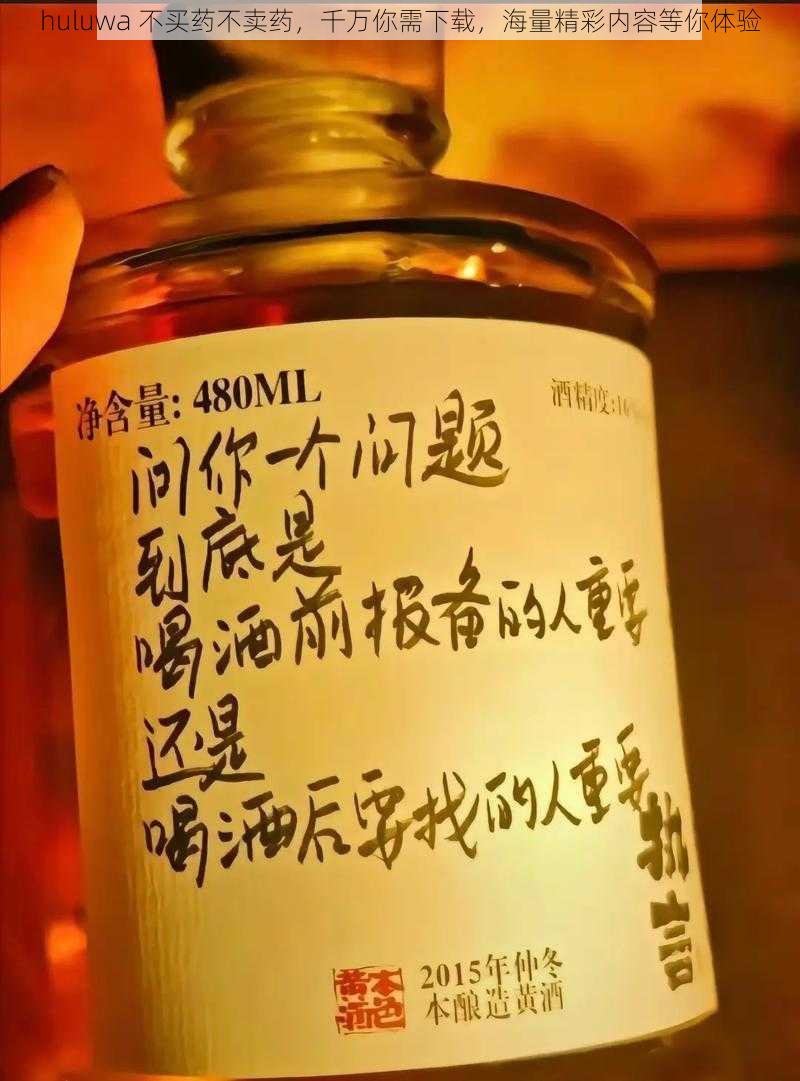 huluwa 不买药不卖药，千万你需下载，海量精彩内容等你体验
净含量: 480ML
酒精度:10
问你一个问题
到底是
喝酒前报备的人重要
还是
喝酒后要找的人重要
执言
本色黄酒
2015年仲冬
本酿造黄酒